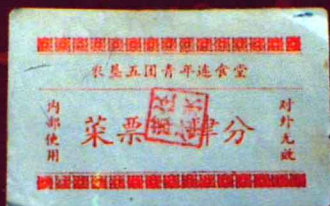 农垦五团青年连食堂
内部使用
菜票
肆分
对外无效